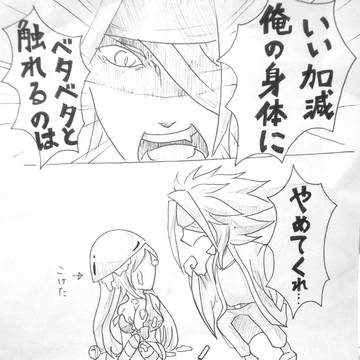 いい加減
俺の身体に
ベタベタと
触れるのは
やめてくれ…
こけた